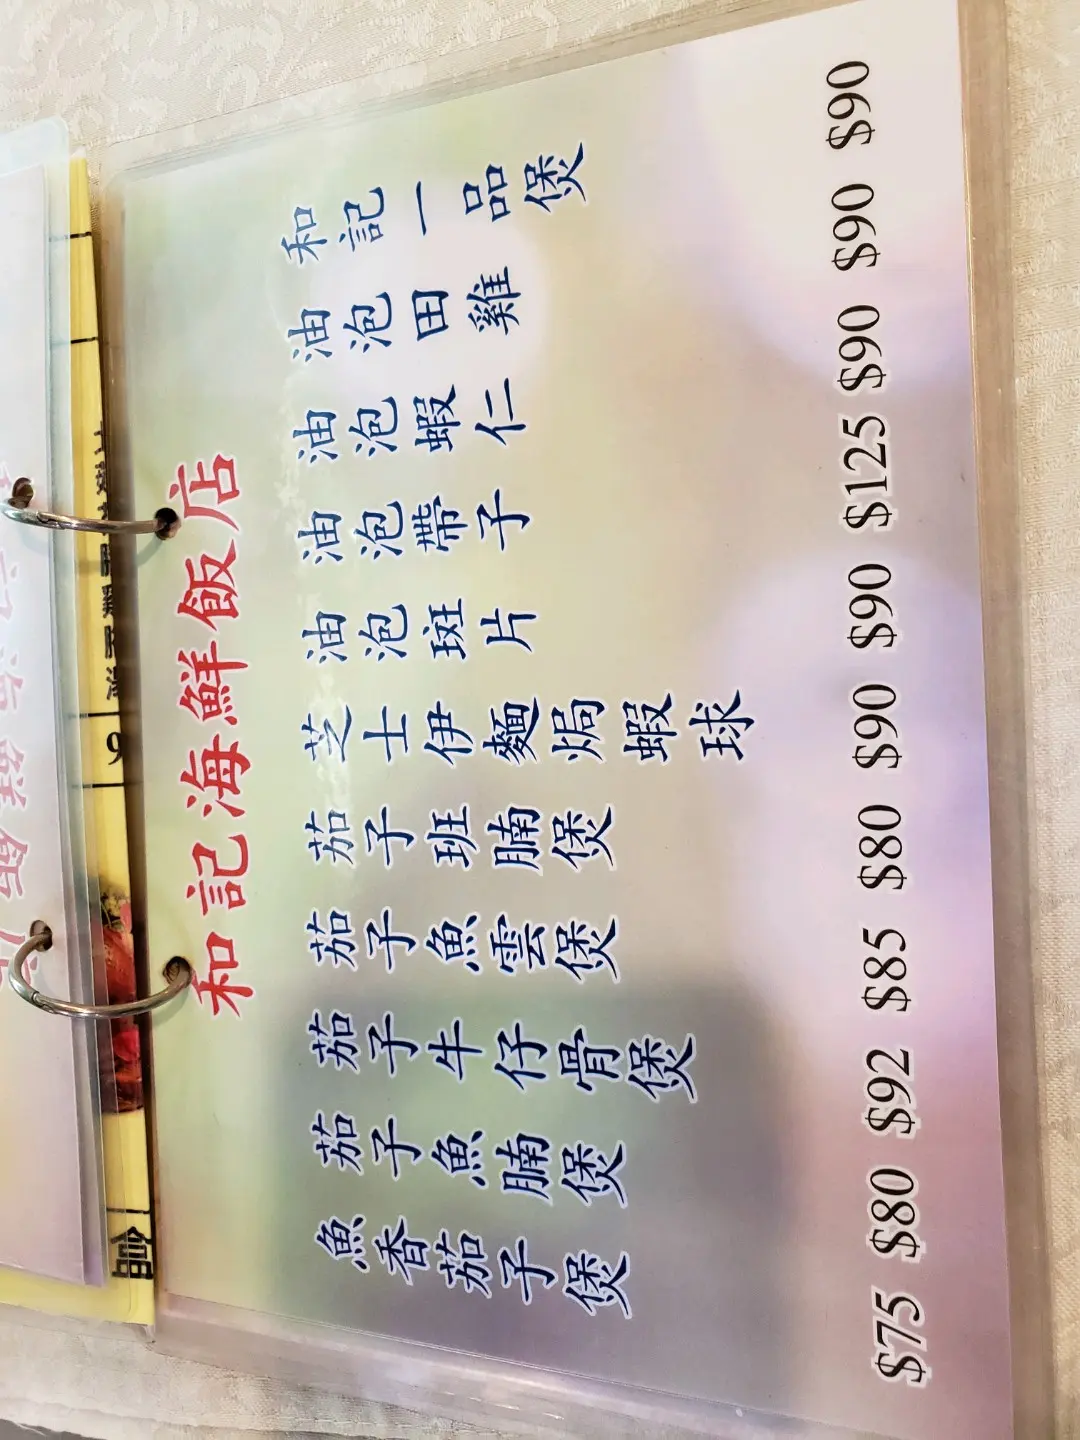 和記海鮮飯店
和記一品煲 $90
油泡田雞 $90
油泡蝦仁 $90
油泡帶子 $125
油泡斑片 $90
芝士伊麵焗蝦球 $90
茄子班腩煲 $80
茄子魚雲煲 $85
茄子牛仔骨煲 $92
茄子魚腩煲 $80
魚香茄子煲 $75